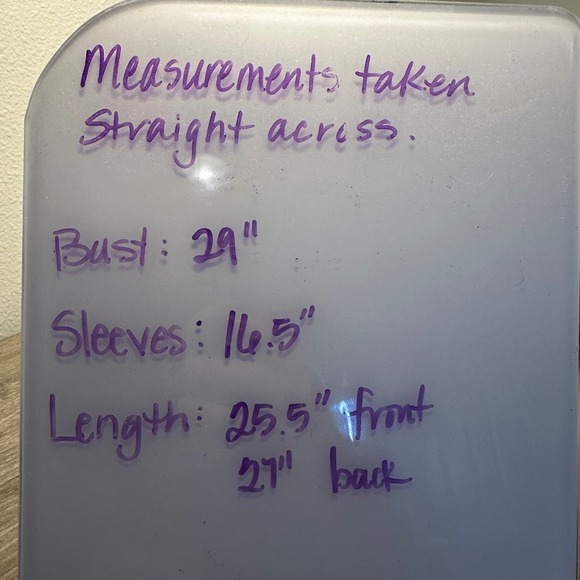 Measurements taken
straight across.
Bust: 29"
Sleeves: 16.5"
Length: 25.5" front
27" back